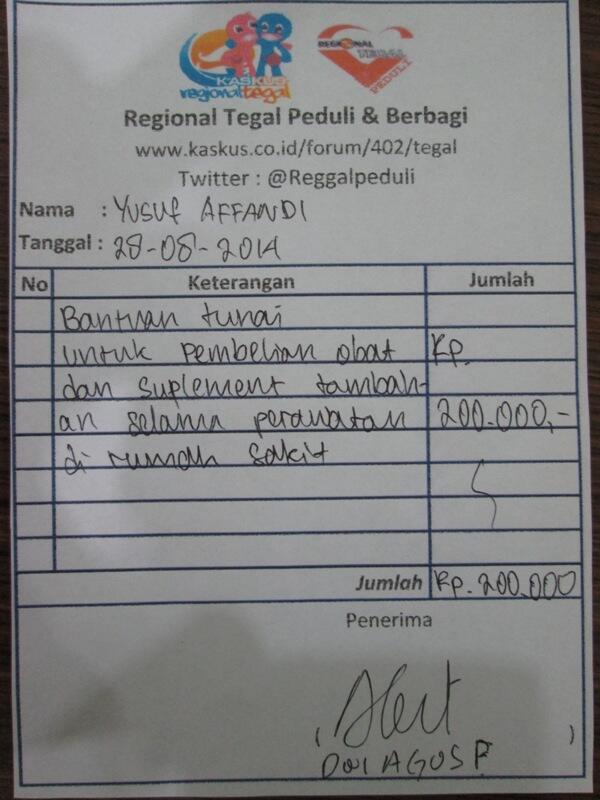 KASKUS
regionaltegal
REGIONAL
TEGAL
PEDULI
Regional Tegal Peduli & Berbagi
www.kaskus.co.id/forum/402/tegal
Twitter : @Reggalpeduli
Nama : YUSUF AFFANDI
Tanggal : 28-08-2014
No Keterangan Jumlah
Bantuan tunai
untuk pembelian obat Rp.
dan suplement tambah-
an selama perawatan 200.000,-
di rumah sakit
Jumlah Rp. 200.000
Penerima
( )
DWI AGUS P